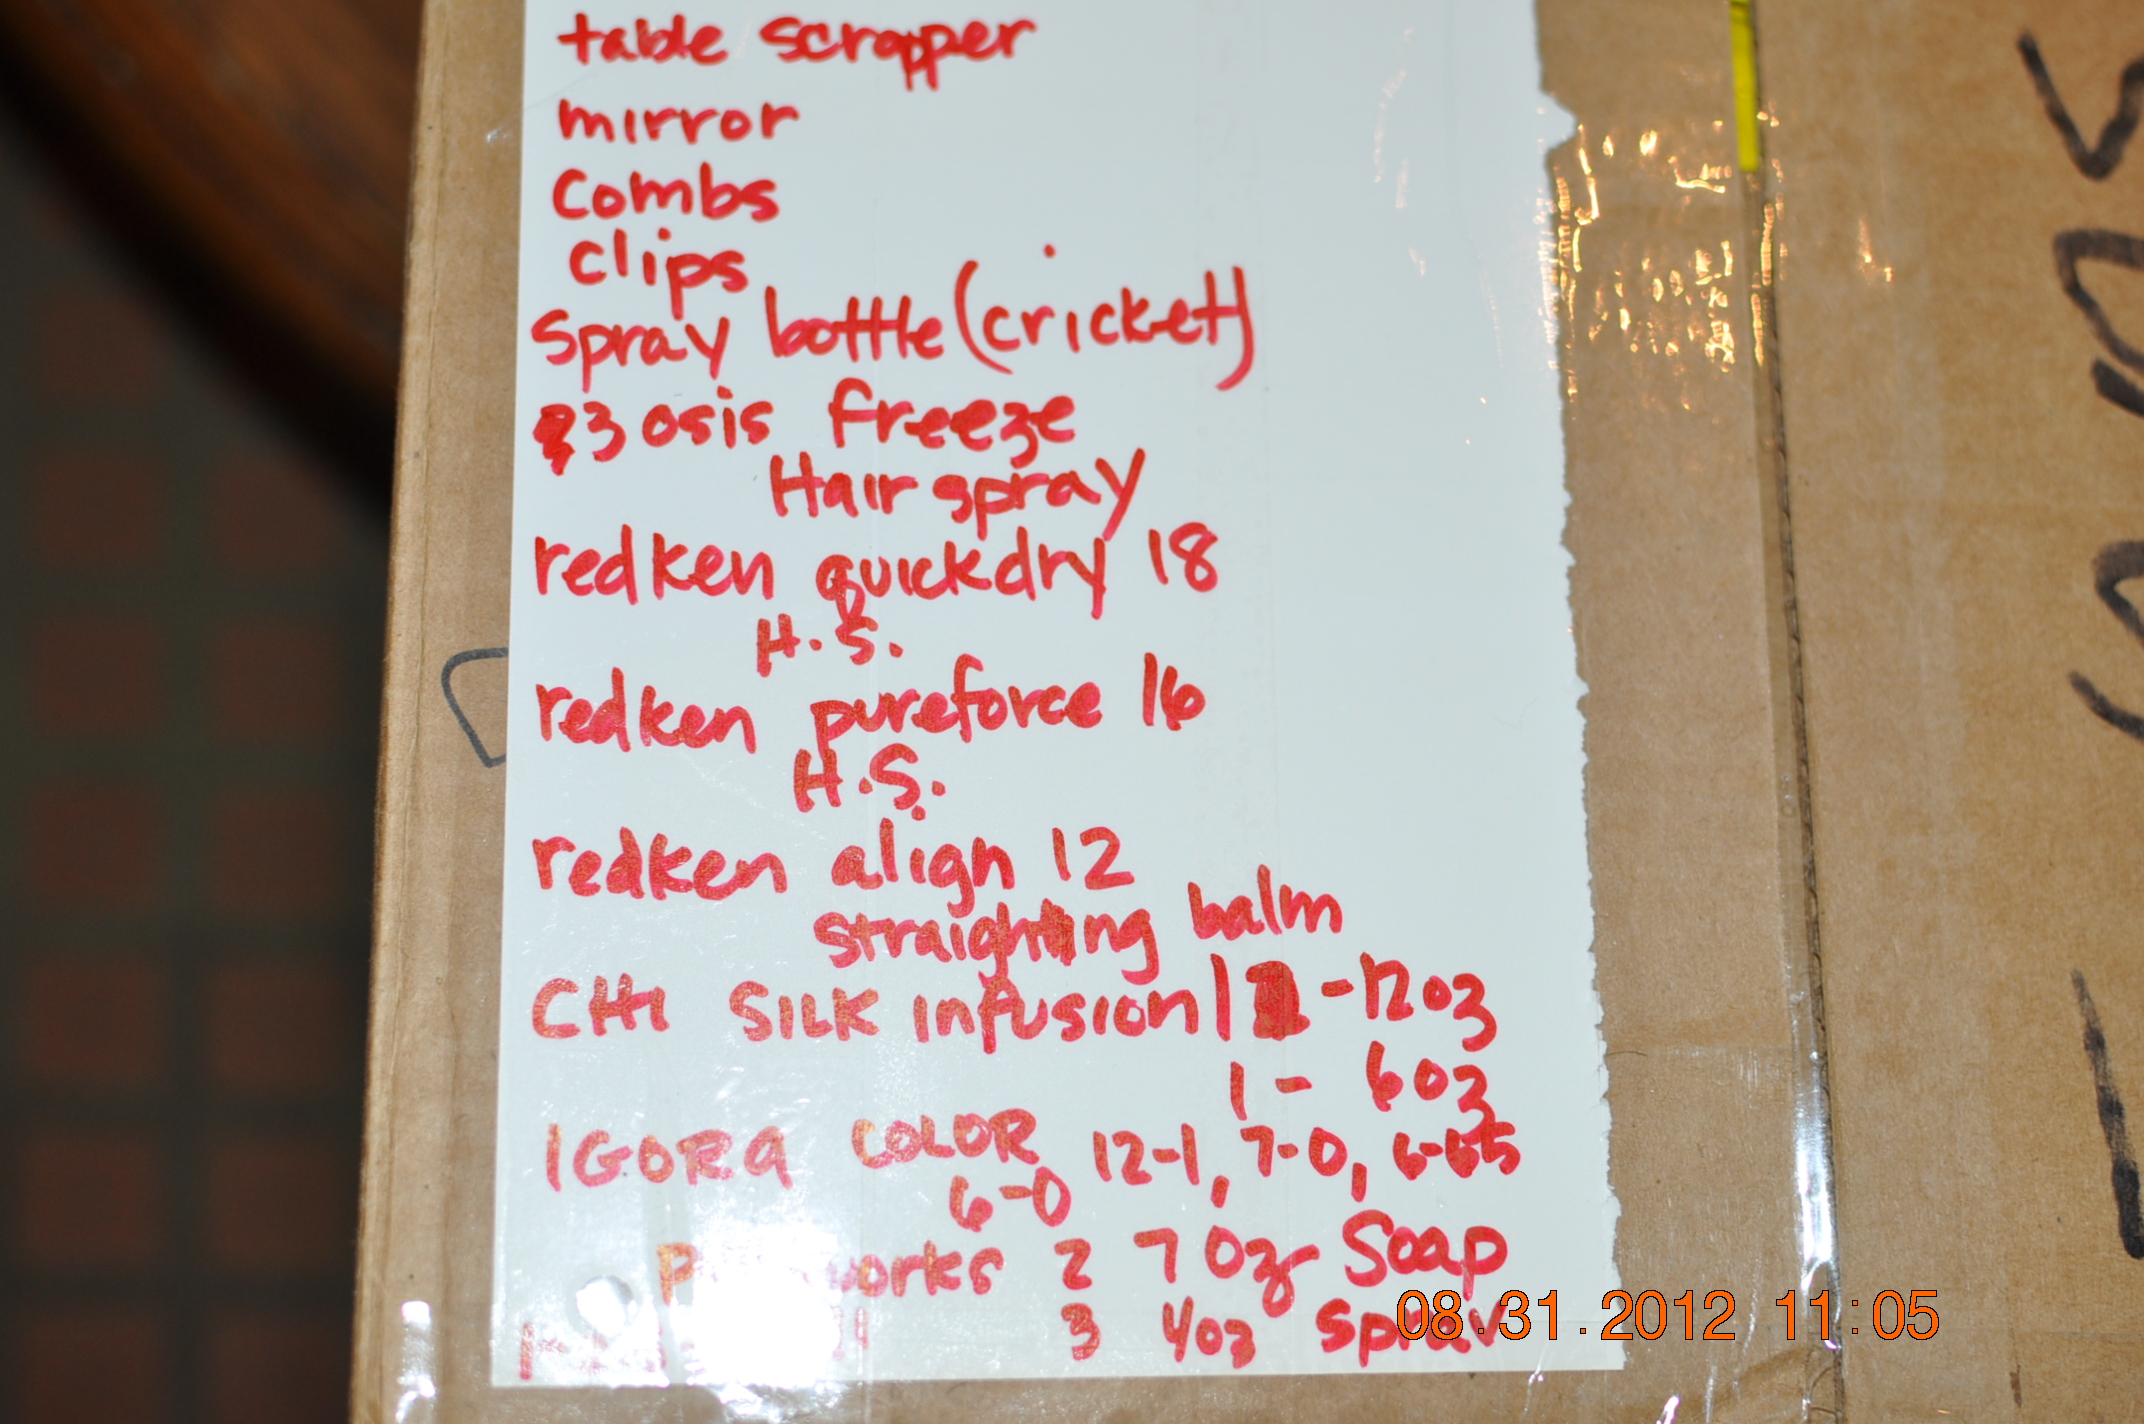 table scrapper
mirror
combs
clips
Spray bottle (cricket)
3 osis freeze
Hair spray
redken quickdry 18
H.S.
redken pureforce 16
H.S.
redken align 12
straighting balm
CHI SILK infusion 1 - 12oz
1 - 6oz
IGORA COLOR 12-1, 7-0, 6-665
6-0
works 2 7 Oz Soap
3 4oz spray
08.31.2012 11:05